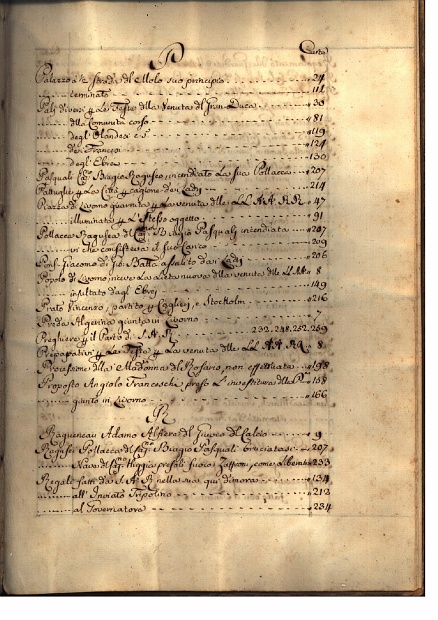 P
Carte
Palazzo a strada del Molo suo principio 24
terminato 111
Palj diversi p le Feste della Venuta del Gran Duca 30
della Comunità corso 81
degl'Olandesi 119
dei Francesi 124
degl'Ebrei 130
Pasquali Biagio Raguseo, incendiata la sua Pollacca 207
Pattuglie p la Città p cagione dei Ladri 214
Piazza di Livorno p la venuta delle LL AA RR 47
illuminata p l'istesso oggetto 91
Pollacca Ragusea del Biagio Pasqualj incendiata 207
in che consisteva il suo Carico 209
Giacomo di Gio Batta assalito dai Ladri 206
Popolo di Livorno riceve la lieta nuova della venuta delle LL 8
insultato dagl'Ebrej 149
Prato Vincenzo, partito p Cagliari, e Stockolm 216
Preda Algerina giunta in Livorno 7
Preghiere p il Parto di S.A.R 232.248.252.259
Preparativi p le Feste p la venuta delle LL AA RR 8
Processione della Madonna del Rosario, non effettuata 198
Proposto Angiolo Franceschi, preso l'investitura della 158
giunto in Livorno 166
R
Raqueneau Adamo Alfiere del Giuoco del Calcio 9
Ragusea Pollacca del Biagio Pasquali bruciatasi 207
Nave del 233
Regali fatti da S.A.R nella sua qui dimora 134
all'Inviato Tripolino 213
al Governatore 234